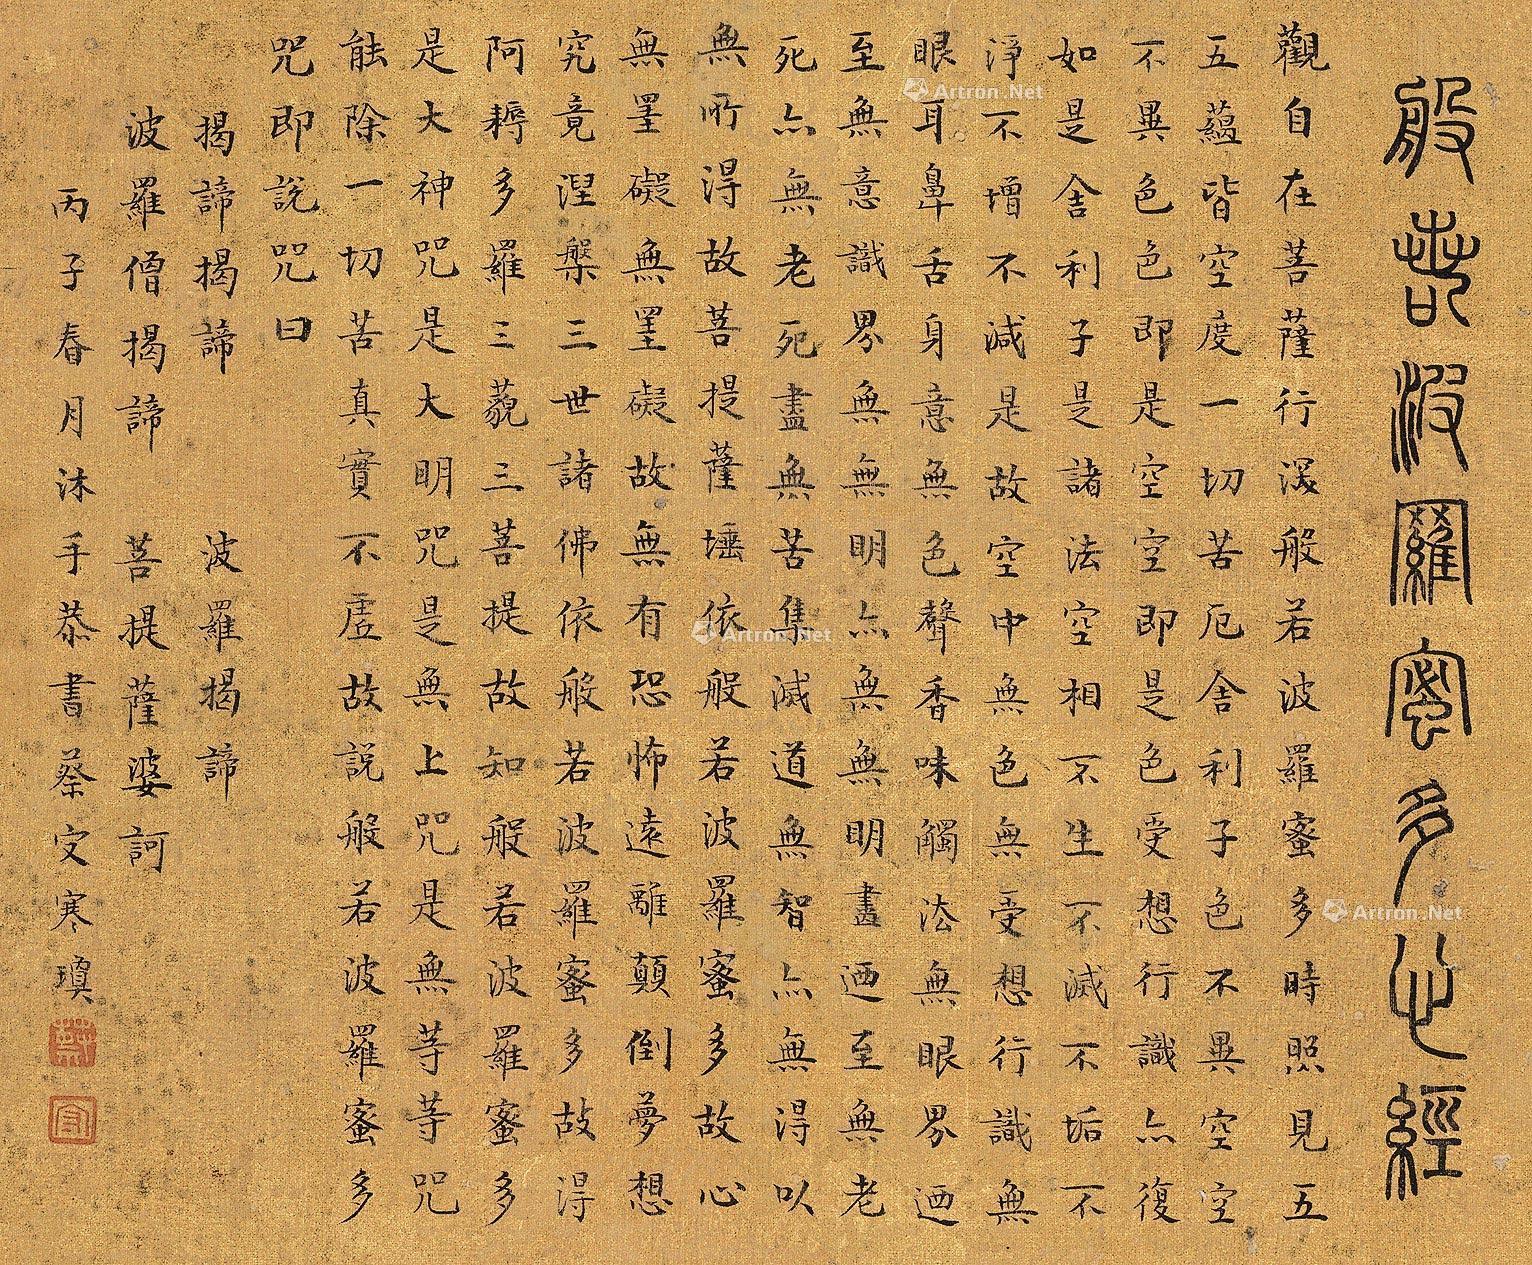 般若波羅蜜多心經
觀自在菩薩行深般若波羅蜜多時照見五
五蘊皆空度一切苦厄舍利子色不異空空
不異色色即是空空即是色受想行識亦復
如是舍利子是諸法空相不生不滅不垢不
淨不增不減是故空中無色無受想行識無
眼耳鼻舌身意無色聲香味觸法無眼界迺
至無意識界無無明亦無無明盡迺至無老
死亦無老死盡無苦集滅道無智亦無得以
無所得故菩提薩埵依般若波羅蜜多故心
無罣礙無罣礙故無有恐怖遠離顛倒夢想
究竟涅槃三世諸佛依般若波羅蜜多故得
阿耨多羅三藐三菩提故知般若波羅蜜多
是大神咒是大明咒是無上咒是無等等咒
能除一切苦真實不虛故說般若波羅蜜多
咒即說咒曰
揭諦揭諦 波羅揭諦
波羅僧揭諦 菩提薩婆訶
丙子春月沐手恭書蔡守寒瓊
蔡
守
Artron.Net
Artron.Net
Artron.Net